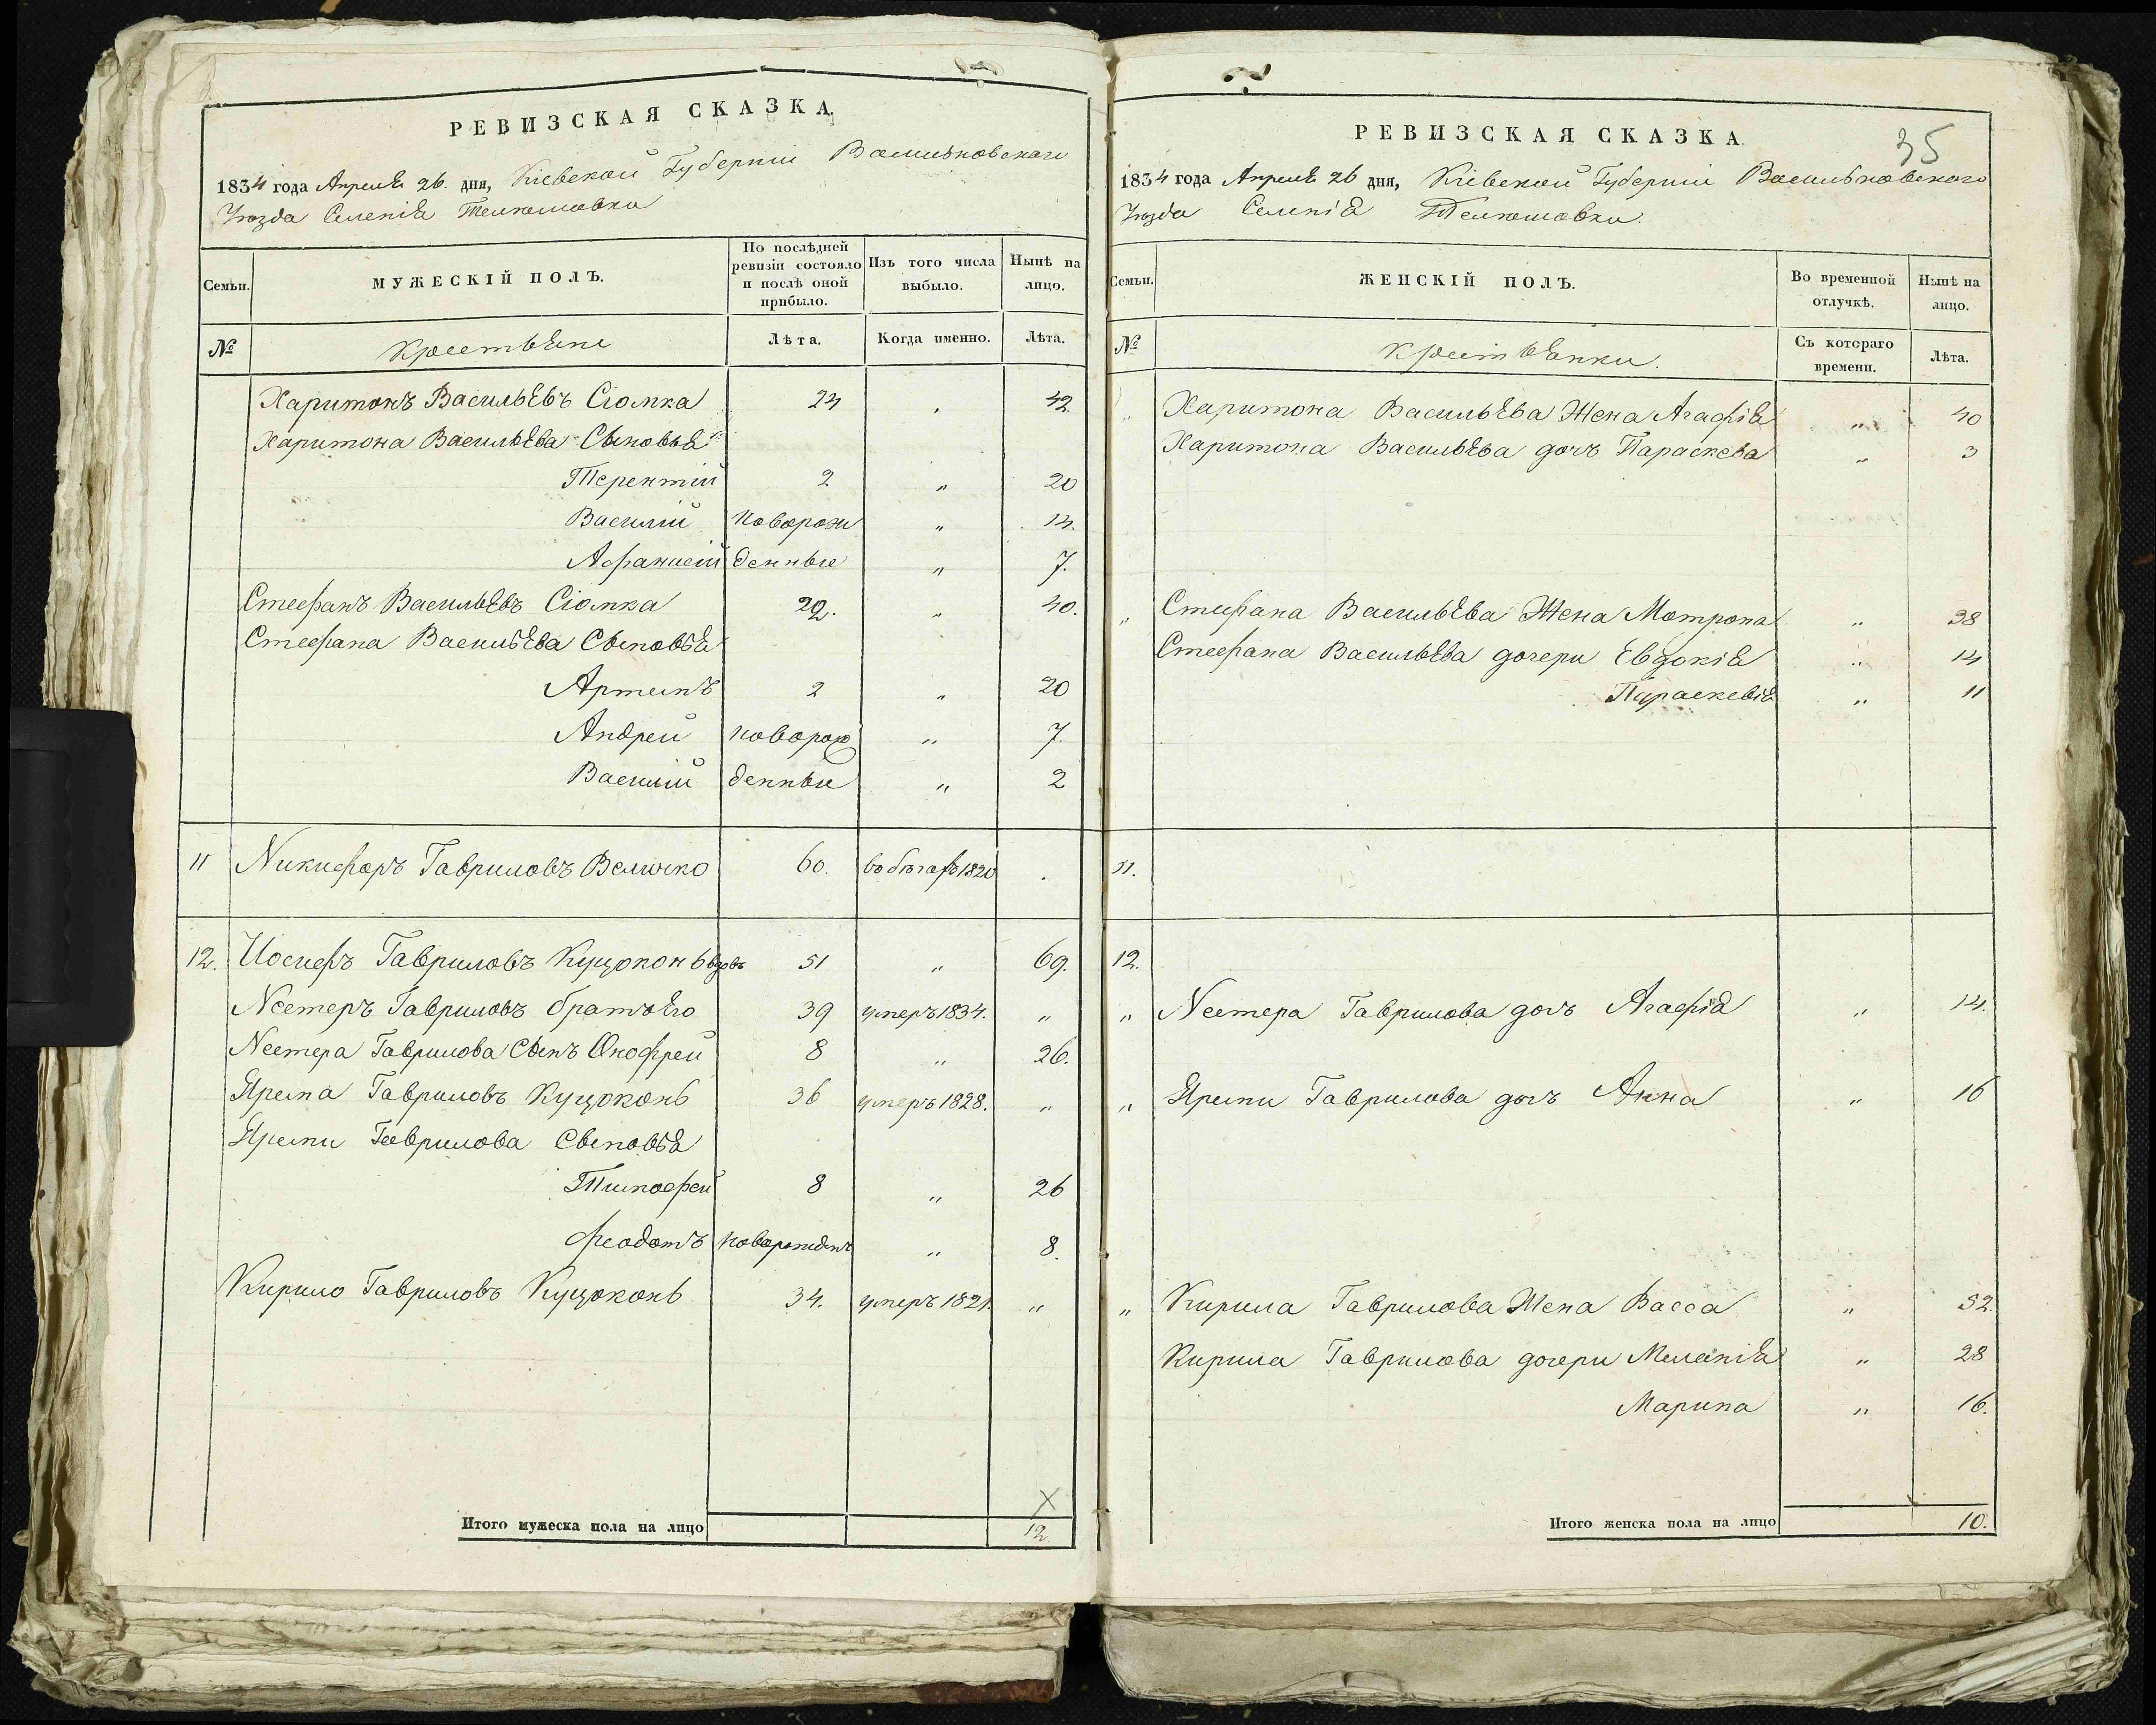 РЕВИЗСКАЯ СКАЗКА.
1834 года Апреля 26. дня, Кіевской Губерніи Васильковскаго
Уезда Селенія Телюшовки
Семьи.
МУЖЕСКІЙ ПОЛЪ.
По послѣдней ревизіи состояло и послѣ оной прибыло.
Изъ того числа выбыло.
Нынѣ на лицо.
№
Крестьяне
Лѣта.
Когда именно.
Лѣта.
Харитонъ Васильевъ Сіомка 24 42.
Харитона Васильева Сыновья
Терентій 2 " 20
Василій новорож " 14.
Афанисій денные " 7.
Стефанъ Васильевъ Сіомка 22. " 40.
Стефана Васильева Сыновья
Артемъ 2 " 20
Андрей новорож " 7.
Василій денные " 2
11 Никифоръ Гавриловъ Величко 60. въ бегах 1820
12. Иосифъ Гавриловъ Куцоконь вдовъ 51 " 69.
Нестеръ Гавриловъ братъ Его 39 умеръ 1834. "
Нестера Гаврилова Сынъ Онофрей 8 " 26.
Ярема Гавриловъ Куцоконь 36 умеръ 1828. "
Яреми Гаврилова Сыновья
Тимофей 8 " 26
Феодотъ новорожденъ " 8.
Кирило Гавриловъ Куцоконь 34. умеръ 1821. "
Итого мужеска пола на лицо 12
РЕВИЗСКАЯ СКАЗКА.
35
1834 года Апреля 26 дня, Кіевской Губерніи Васильковского
Уезда Селенія Телюшовки.
Семьи.
ЖЕНСКІЙ ПОЛЪ.
Во временной отлучкѣ.
Нынѣ на лицо.
№
Крестьянки.
Съ котораго времени.
Лѣта.
" Харитона Васильева Жена Агафія " 40
Харитона Васильева дочъ Параскева " 3
" Стефана Васильева Жена Мотрона " 38
Стефана Васильева дочери Евдокія " 14
Параскевія " 11
11.
12.
" Нестера Гаврилова дочъ Агафія " 14.
" Яреми Гаврилова дочъ Анна " 16
" Кирила Гаврилова Жена Васса " 52.
Кирила Гаврилова дочери Меланія " 28
Марина " 16.
Итого женска пола на лицо 10.